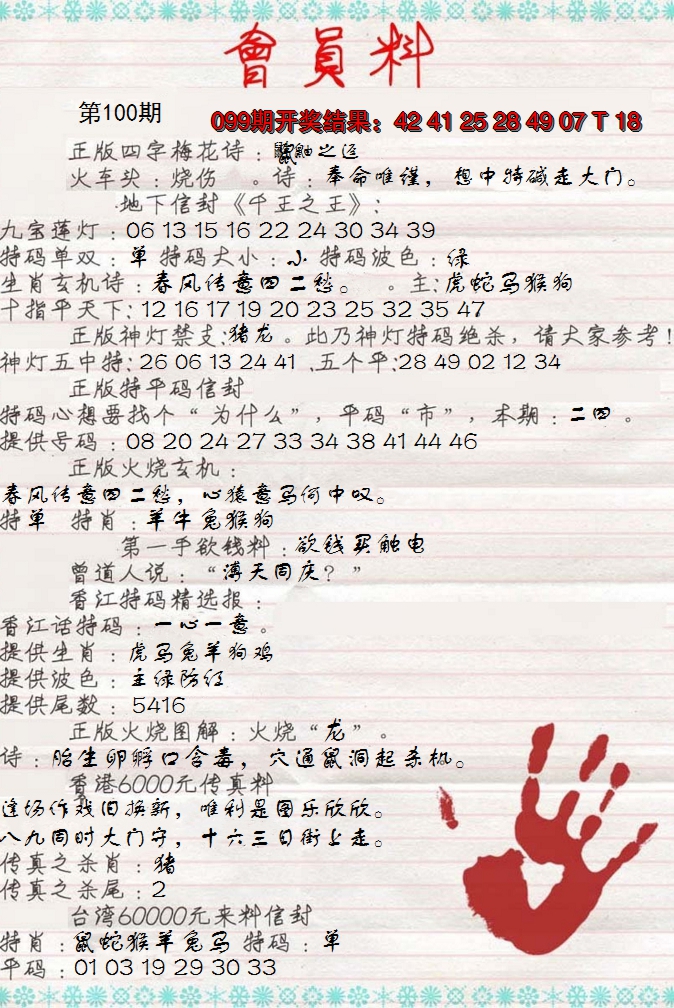 會員料
第100期
099期开奖结果：42 41 25 28 49 07 T 18
正版四字梅花诗：鼠之运
火车头：烧伤 。诗：奉命唯谨，想中特碱走大门。
地下信封《千王之王》:
九宝莲灯：06 13 15 16 22 24 30 34 39
特码单双：单 特码大小：小 特码波色：绿
生肖玄机诗：春风传意四二愁。 。主:虎蛇马猴狗
十指平天下:12 16 17 19 20 23 25 32 35 47
正版神灯禁支:猪龙。此乃神灯特码绝杀，请大家参考!
神灯五中特:26 06 13 24 41 .五个平:28 49 02 12 34
正版特平码信封
特码心想要找个“为什么”，平码“市”，本期：二四。
提供号码：08 20 24 27 33 34 38 41 44 46
正版火烧玄机：
春风传意四二愁，心猿意马何中叹。
特单 特肖：羊牛兔猴狗
第一手欲钱料：欲钱买触电
曾道人说：“溥天同庆？”
香江特码精选报：
香江话特码：一心一意。
提供生肖：虎马兔羊狗鸡
提供波色：主绿防红
提供尾数：5416
正版火烧图解：火烧“龙”。
诗：胎生卵孵口含毒，穴通鼠洞起杀机。
香港6000元传真料
逢场作戏旧换新，唯利是图乐欣欣。
八九同时大门守，十六三日街上走。
传真之杀肖：猪
传真之杀尾：2
台湾60000元来料信封
特肖：鼠蛇猴羊兔马 特码：单
平码：01 03 19 29 30 33